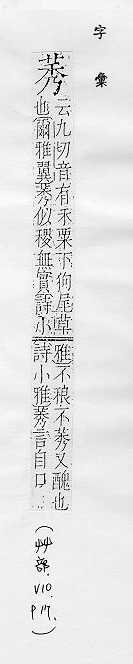 字彙
莠
云九切音有禾粟下狗尾草
也爾雅翼莠似稷無實詩小
雅不稂不莠又醜也
詩小雅莠言自口
(艸部. V10. P17.)